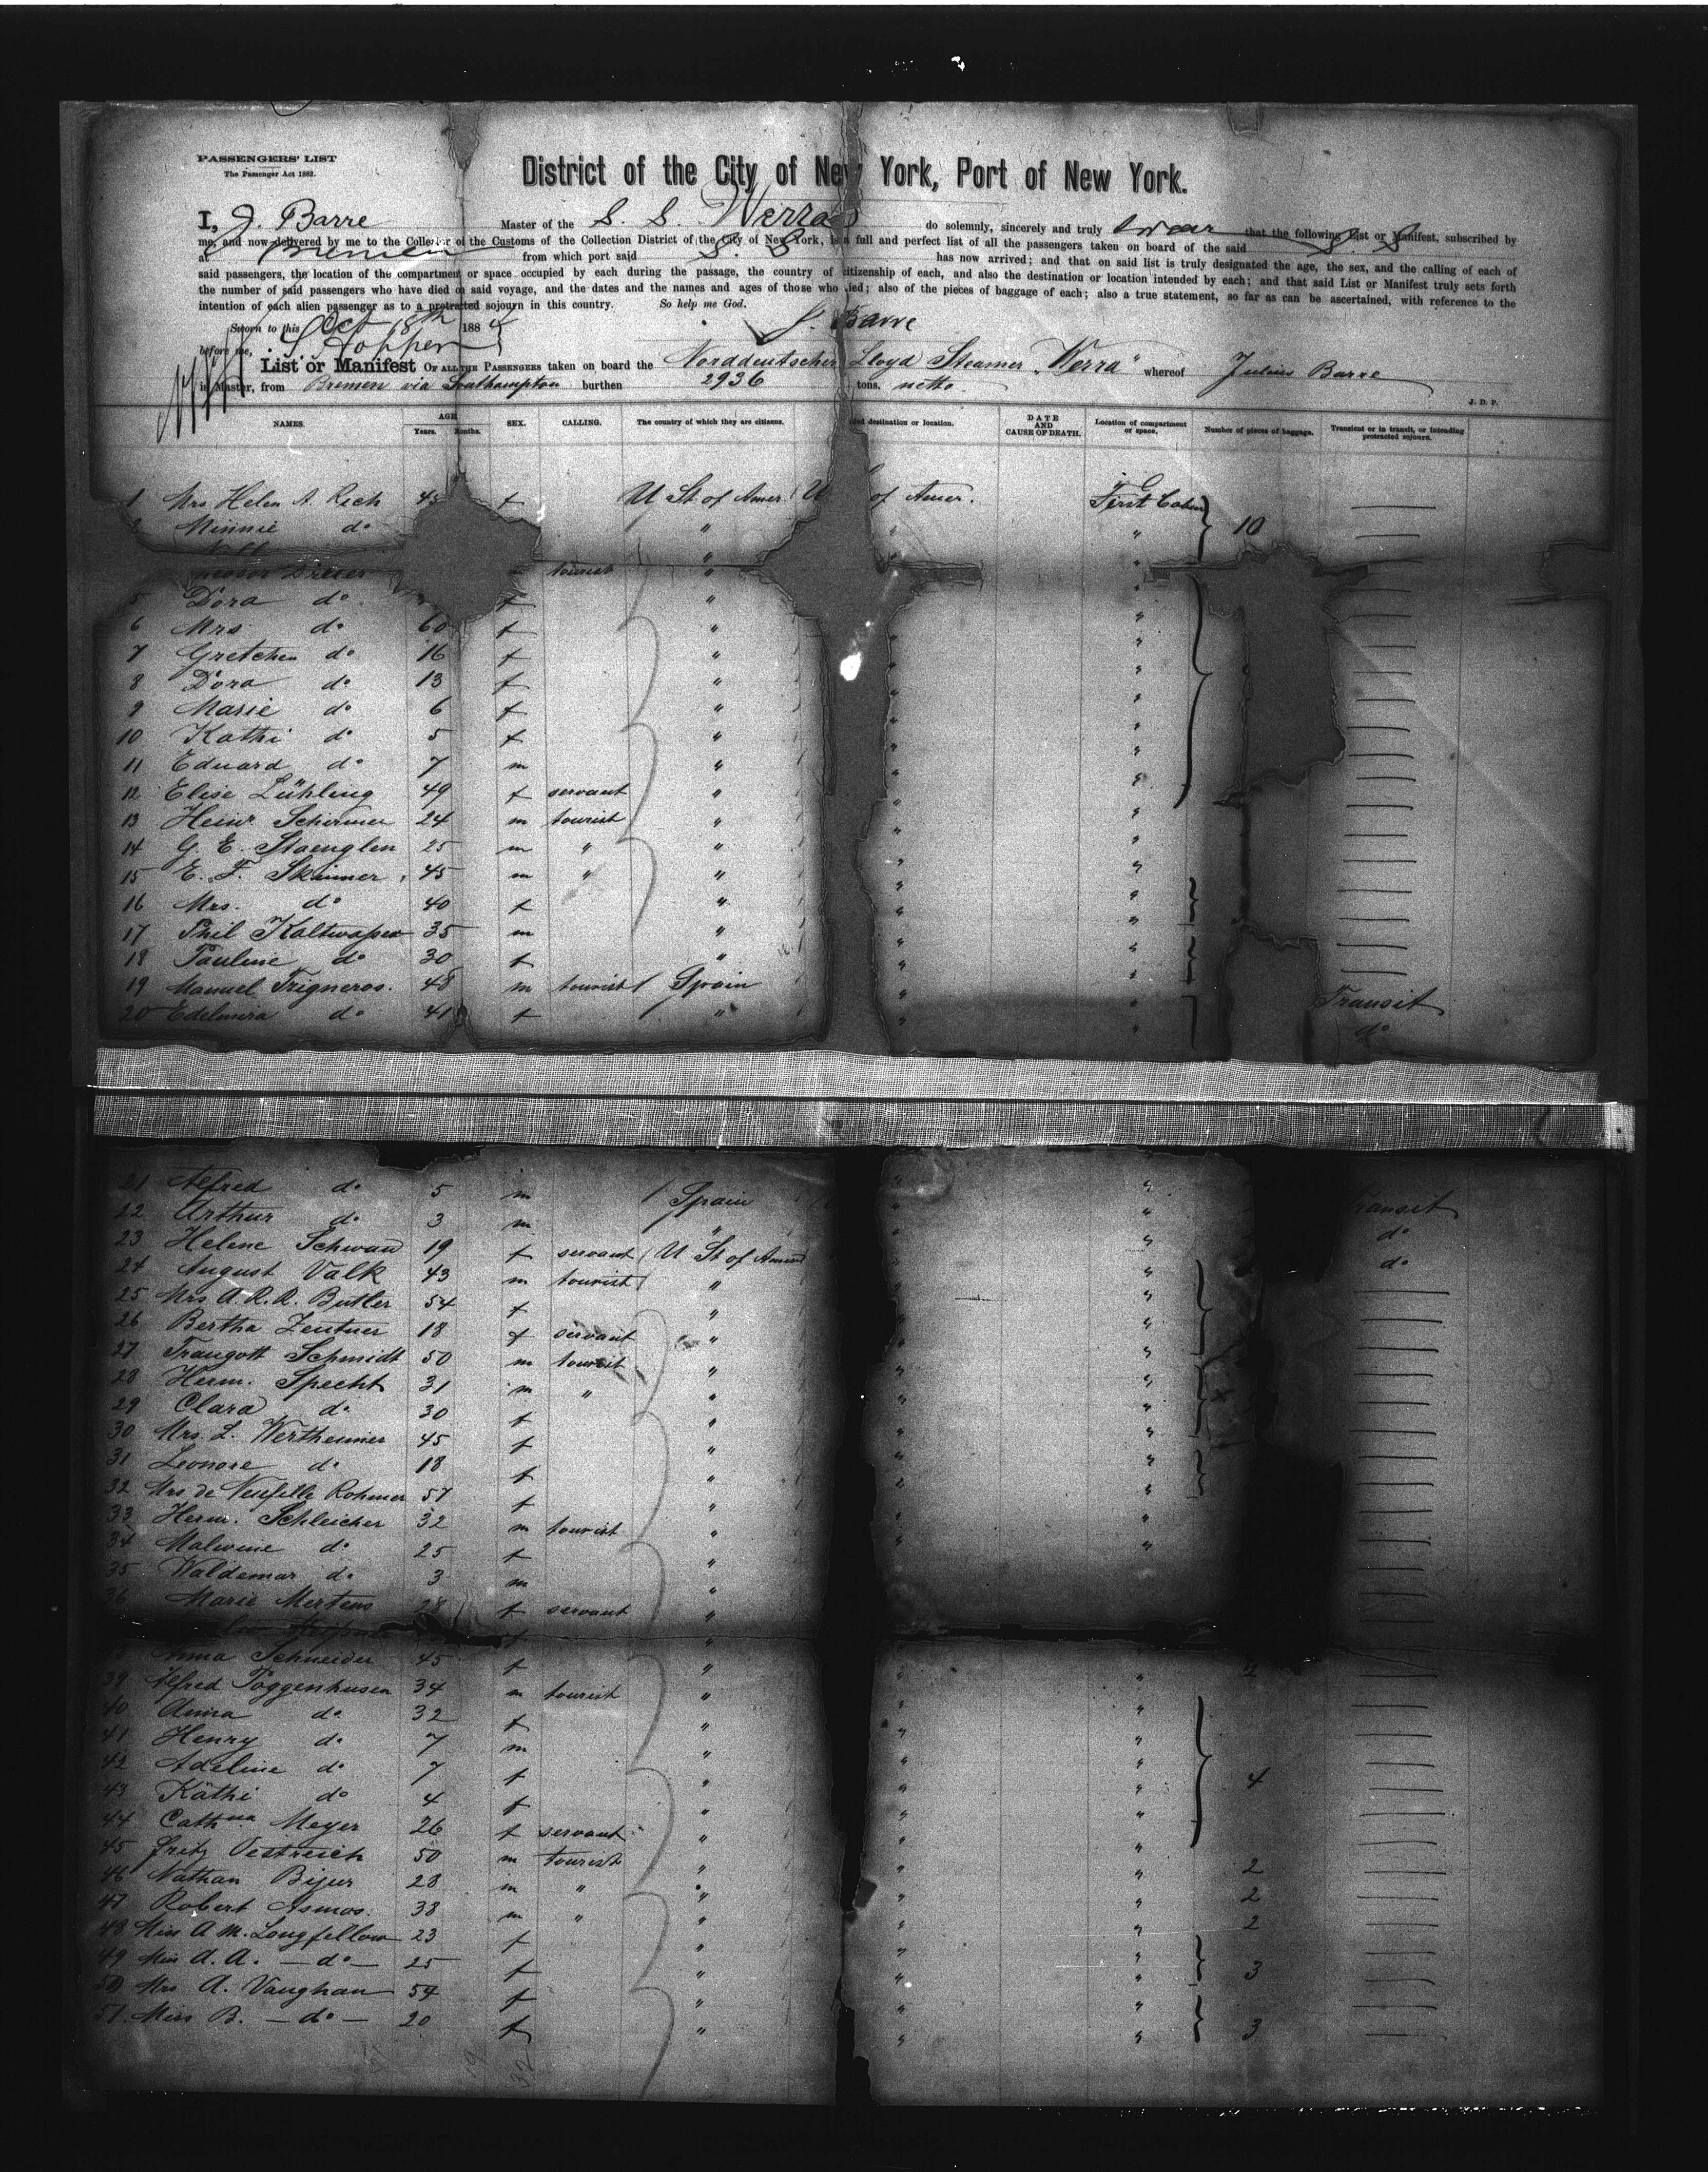 PASSENGERS' LIST
The Passenger Act 1882.
District of the City of New York, Port of New York.
I, J. Barre Master of the S. S. Werra do solemnly, sincerely and truly swear that the following List or Manifest, subscribed by
me, and now delivered by me to the Collector of the Customs of the Collection District of the City of New York, is a full and perfect list of all the passengers taken on board of the said S. S.
at Bremen from which port said S. S. has now arrived; and that on said list is truly designated the age, the sex, and the calling of each of
said passengers, the location of the compartment or space occupied by each during the passage, the country of citizenship of each, and also the destination or location intended by each; and that said List or Manifest truly sets forth
the number of said passengers who have died on said voyage, and the dates and the names and ages of those who died; also of the pieces of baggage of each; also a true statement, so far as can be ascertained, with reference to the
intention of each alien passenger as to a protracted sojourn in this country. So help me God.
Sworn to this Oct 18th 1884 J. Barre
before me, Hopper
List or Manifest OF ALL THE PASSENGERS taken on board the Norddeutscher Lloyd Steamer "Werra" whereof Julius Barre
is Master, from Bremen via Southampton burthen 2936 tons, netto.
J. D. P.
NAMES. AGE Years. Months. SEX. CALLING. The country of which they are citizens. destination or location. DATE AND CAUSE OF DEATH. Location of compartment or space. Number of pieces of baggage. Transient or in transit, or intending protracted sojourn.
1 Mrs Helen A. Rich 45 f U St of Amer. U of Amer. First Cabin
2 Minnie do " " " 10
" 
Dreier tourist " "
5 Dora do f " "
6 Mrs do 60 f " " "
7 Gretchen do 16 f " " "
8 Dora do 13 f " " "
9 Marie do 6 f " " "
10 Kathi do 5 f " " "
11 Eduard do 7 m " " "
12 Elise Lühling 49 f servant " " "
13 Heinr. Schirmer 24 m tourist " " "
14 G. E. Staenglen 25 m " " " "
15 E. F. Skinner 45 m " " " "
16 Mrs. do 40 f " " "
17 Phil Kaltwasser 35 m " " "
18 Pauline do 30 f " " "
19 Manuel Trigneros. 48 m tourist Spain " " Transit
20 Edelmira do 41 f " " " do
21 Alfred do 5 m Spain " " Transit
22 Arthur do 3 m " " " do
23 Helene Schwan 19 f servant U St of Amer " " do
24 August Valk 43 m tourist " " "
25 Mrs A. R. R. Butler 54 f " " "
26 Bertha Zentner 18 f servant " " "
27 Traugott Schmidt 50 m tourist " " "
28 Herm. Specht 31 m " " " "
29 Clara do 30 f " " "
30 Mrs. L. Wertheimer 45 f " " "
31 Leonore do 18 f " " "
32 Mrs de Neufville Rohmer 57 f " " "
33 Herm. Schleicher 32 m tourist " " "
34 Malwine do 25 f " "
35 Waldemar do 3 m "
36 Marie Mertens 28 f servant "
f "
38 Anna Schneider 45 f " " " 2
39 Alfred Poggenhusen 34 m tourist " " "
40 Anna do 32 f " " "
41 Henry do 7 m " " "
42 Adeline do 7 f " " " 4
43 Käthi do 4 f " " "
44 Cathna Meyer 26 f servant " " "
45 Fritz Oestreich 50 m tourist " " " 2
46 Nathan Bijur 28 m " " " " 2
47 Robert Asmos. 38 m " " " " 2
48 Miss A M. Longfellow 23 f " " "
49 Miss A. A. — do — 25 f " " " 3
50 Mrs A. Vaughan 54 f " " "
51. Miss B. — do — 20 f " " " 3